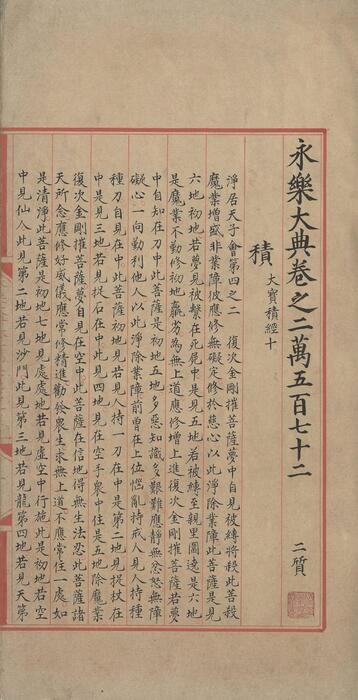 永樂大典卷之二萬五百七十二 二質
積 大寶積經十
淨居天子會第四之二 復次金剛摧菩薩夢中自見被縛將殺此菩殺
魔業增盛非業障彼應修無礙定修於慈心以此淨除業障此菩薩是見
六地初地若夢見被繫在死屍中是見五地若被縛至親里圍遶是六地
是魔業不勤修初地羸劣為無上道應修增上進復次金剛摧菩薩若夢
中自知在刀中此菩薩是初地五地多惡知識多艱難應靜無忿怒無障
礙心一向勤利他人以此淨除業障前曾在上位惱亂持戒人見人持種
種刀自見在中此菩薩初地見若見人持一刀在中是第二地見捉杖在
中是見三地若見捉石在中此見四地見在空手衆中住是五地除魔業
復次金剛摧菩薩夢自見在空中此菩薩在信地得無生法忍此菩薩諸
天所念應修好威儀應常修精進勸餘衆生求無上道不應常住一處如
是清淨此菩薩是初地七地見處處地若見虛空中行施此是初地若空
中見仙人此見第二地若見沙門此見第三地若見龍第四地若見天第